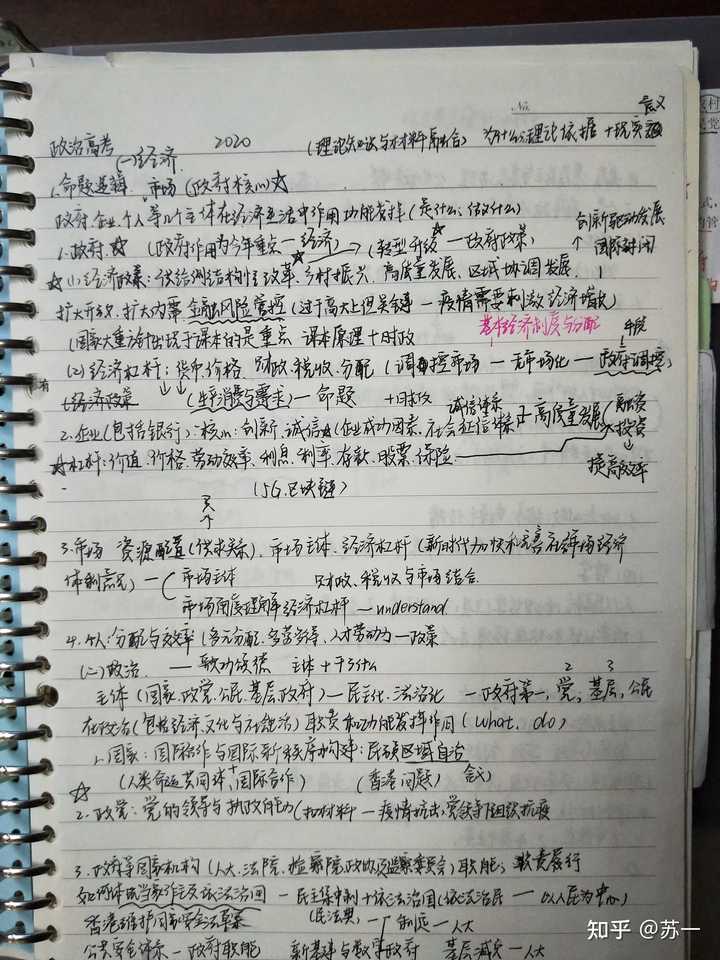 No.
意义
政治高考 2020 (理论知识与材料结合) 为什么:理论依据+现实
(一)经济
1.命题逻辑 市场(政府核心)☆
政府、企业、个人等几个主体在经济生活中作用功能发挥(是什么、做什么)
创新驱动发展
1.政府☆ (政府作用为今年重点—经济) (转型升级—政府政策) 国际
☆(1)经济政策:供给侧结构性改革、乡村振兴、高质量发展、区域协调发展、
扩大开放、扩大内需 金融风险管控(过于高大上但关键—疫情需要刺激经济增长)
(国家大重 课本的是重点 课本原理+时政 基本经济制度与分配 手段
(2)经济杠杆:货币、价格、财政、税收、分配(调控市场—市场化—政府调控)
有
+经济政策 (生产消费与需求)—命题 +时政
诚信体系
2.企业(包括银行):核心:创新、诚信☆(企业成功因素、社会征信体系 高质量发展 (融资
投资
☆杠杆:价值、价格、劳动效率、利息、利率、存款、股票、保险 提高效率
(5G、区块链)
3.市场 资源配置(供求关系)、市场主体、经济杠杆(新时代加快完善社会主义市场经济
体制意见)— 市场主体 财政、税收与市场结合
市场角度理解经济杠杆—understand
4.个人:分配与效率(多元分配、多劳多得、人才劳动力—政策
(二)政治 — 职功 主体+干什么
2 3
主体(国家、政党、公民、基层、政府)—民主化、法治化 —政府第一,党,基层,公民
在政治(包括经济、文化与社会)职责和功能发挥作用(what、do)
1.国家:国际合作与国际新秩序构建:民族区域自治
(人类命运共同体+国际合作) (香港问题)
☆
2.政党:党的领导与执政能力(材料—疫情抗击,党领导组织抗疫
3.政府等国家机构(人大、法院、检察院、政协及监察委员会)职能、职责履行
如何体现当家作主及依法治国—民主集中制+依法治国(依法治民—以人民为中心)
香港维护国家安全法草案 (民法典)— 制定—人大
公共安全体系—政府职能 新基建与数字政府 基层减负—人大
知乎 @苏一